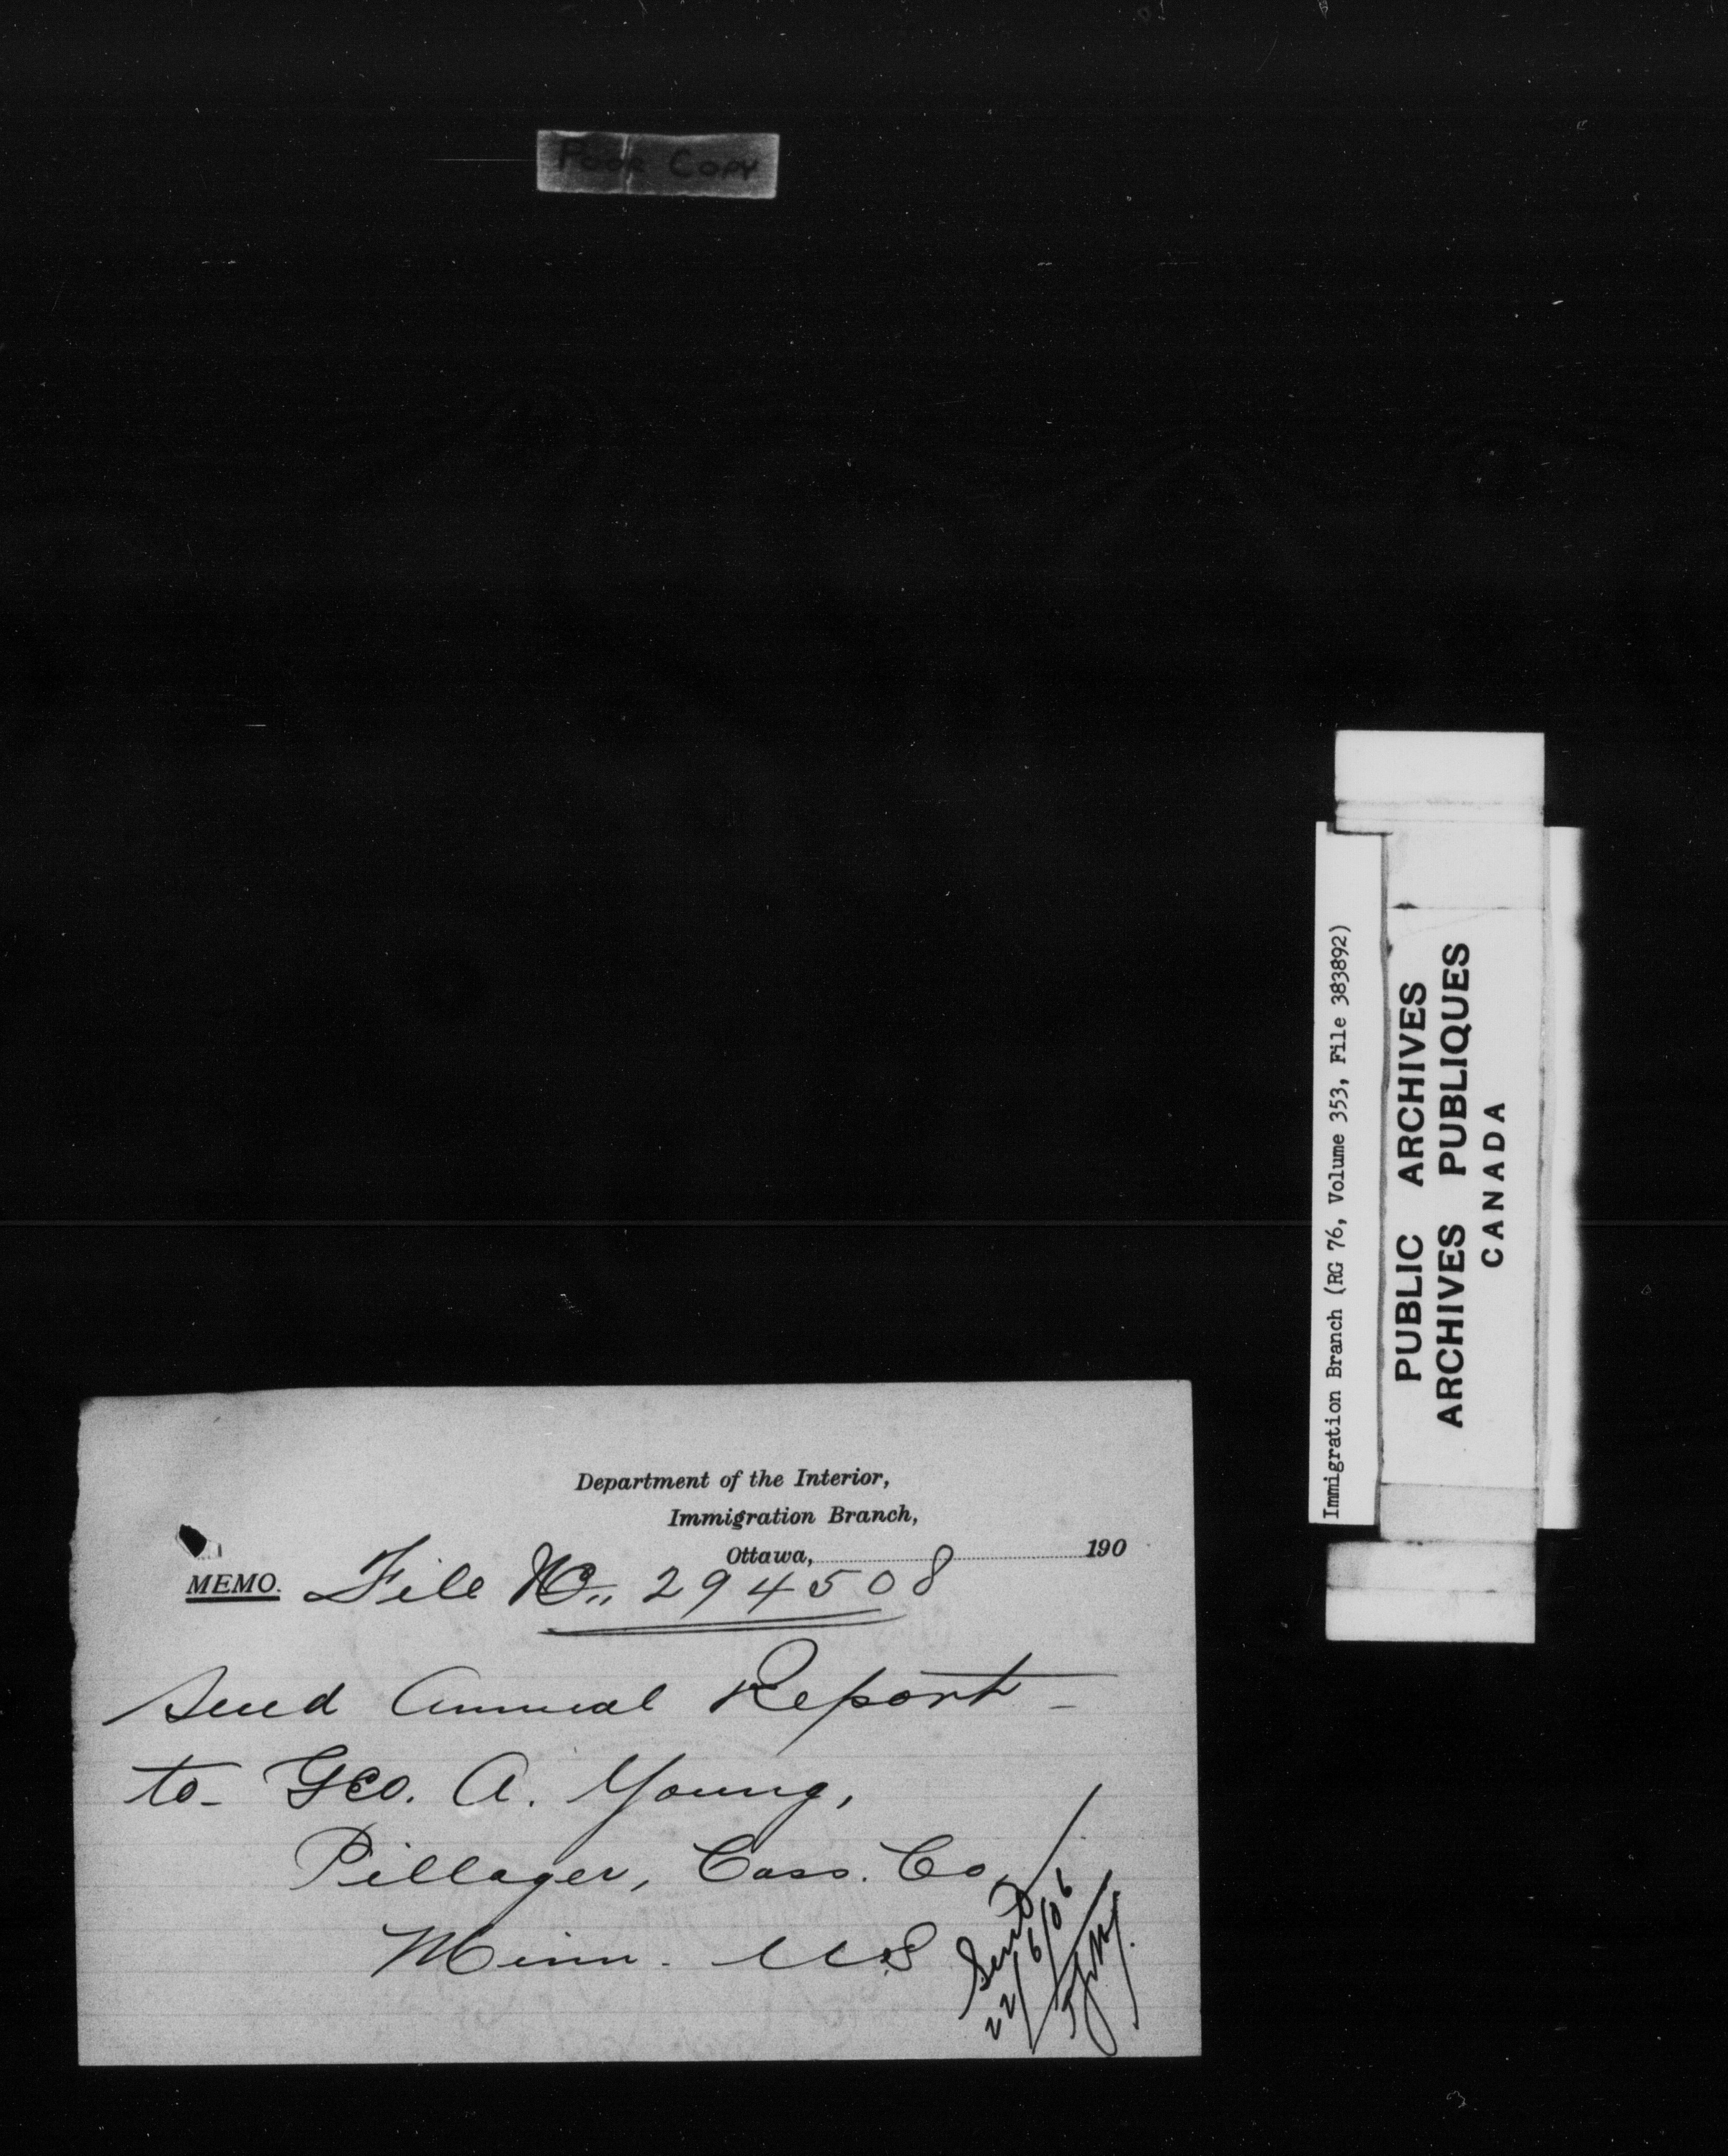 POOR COPY
Immigration Branch (RG 76, Volume 353, File 383892)
PUBLIC ARCHIVES
ARCHIVES PUBLIQUES
CANADA
Department of the Interior,
Immigration Branch,
Ottawa, 190
MEMO. File No. 294508
Send Annual Report
to Geo. A. Young,
Pillager, Cass. Co,
Minn. U.S
Sent
22/6/06